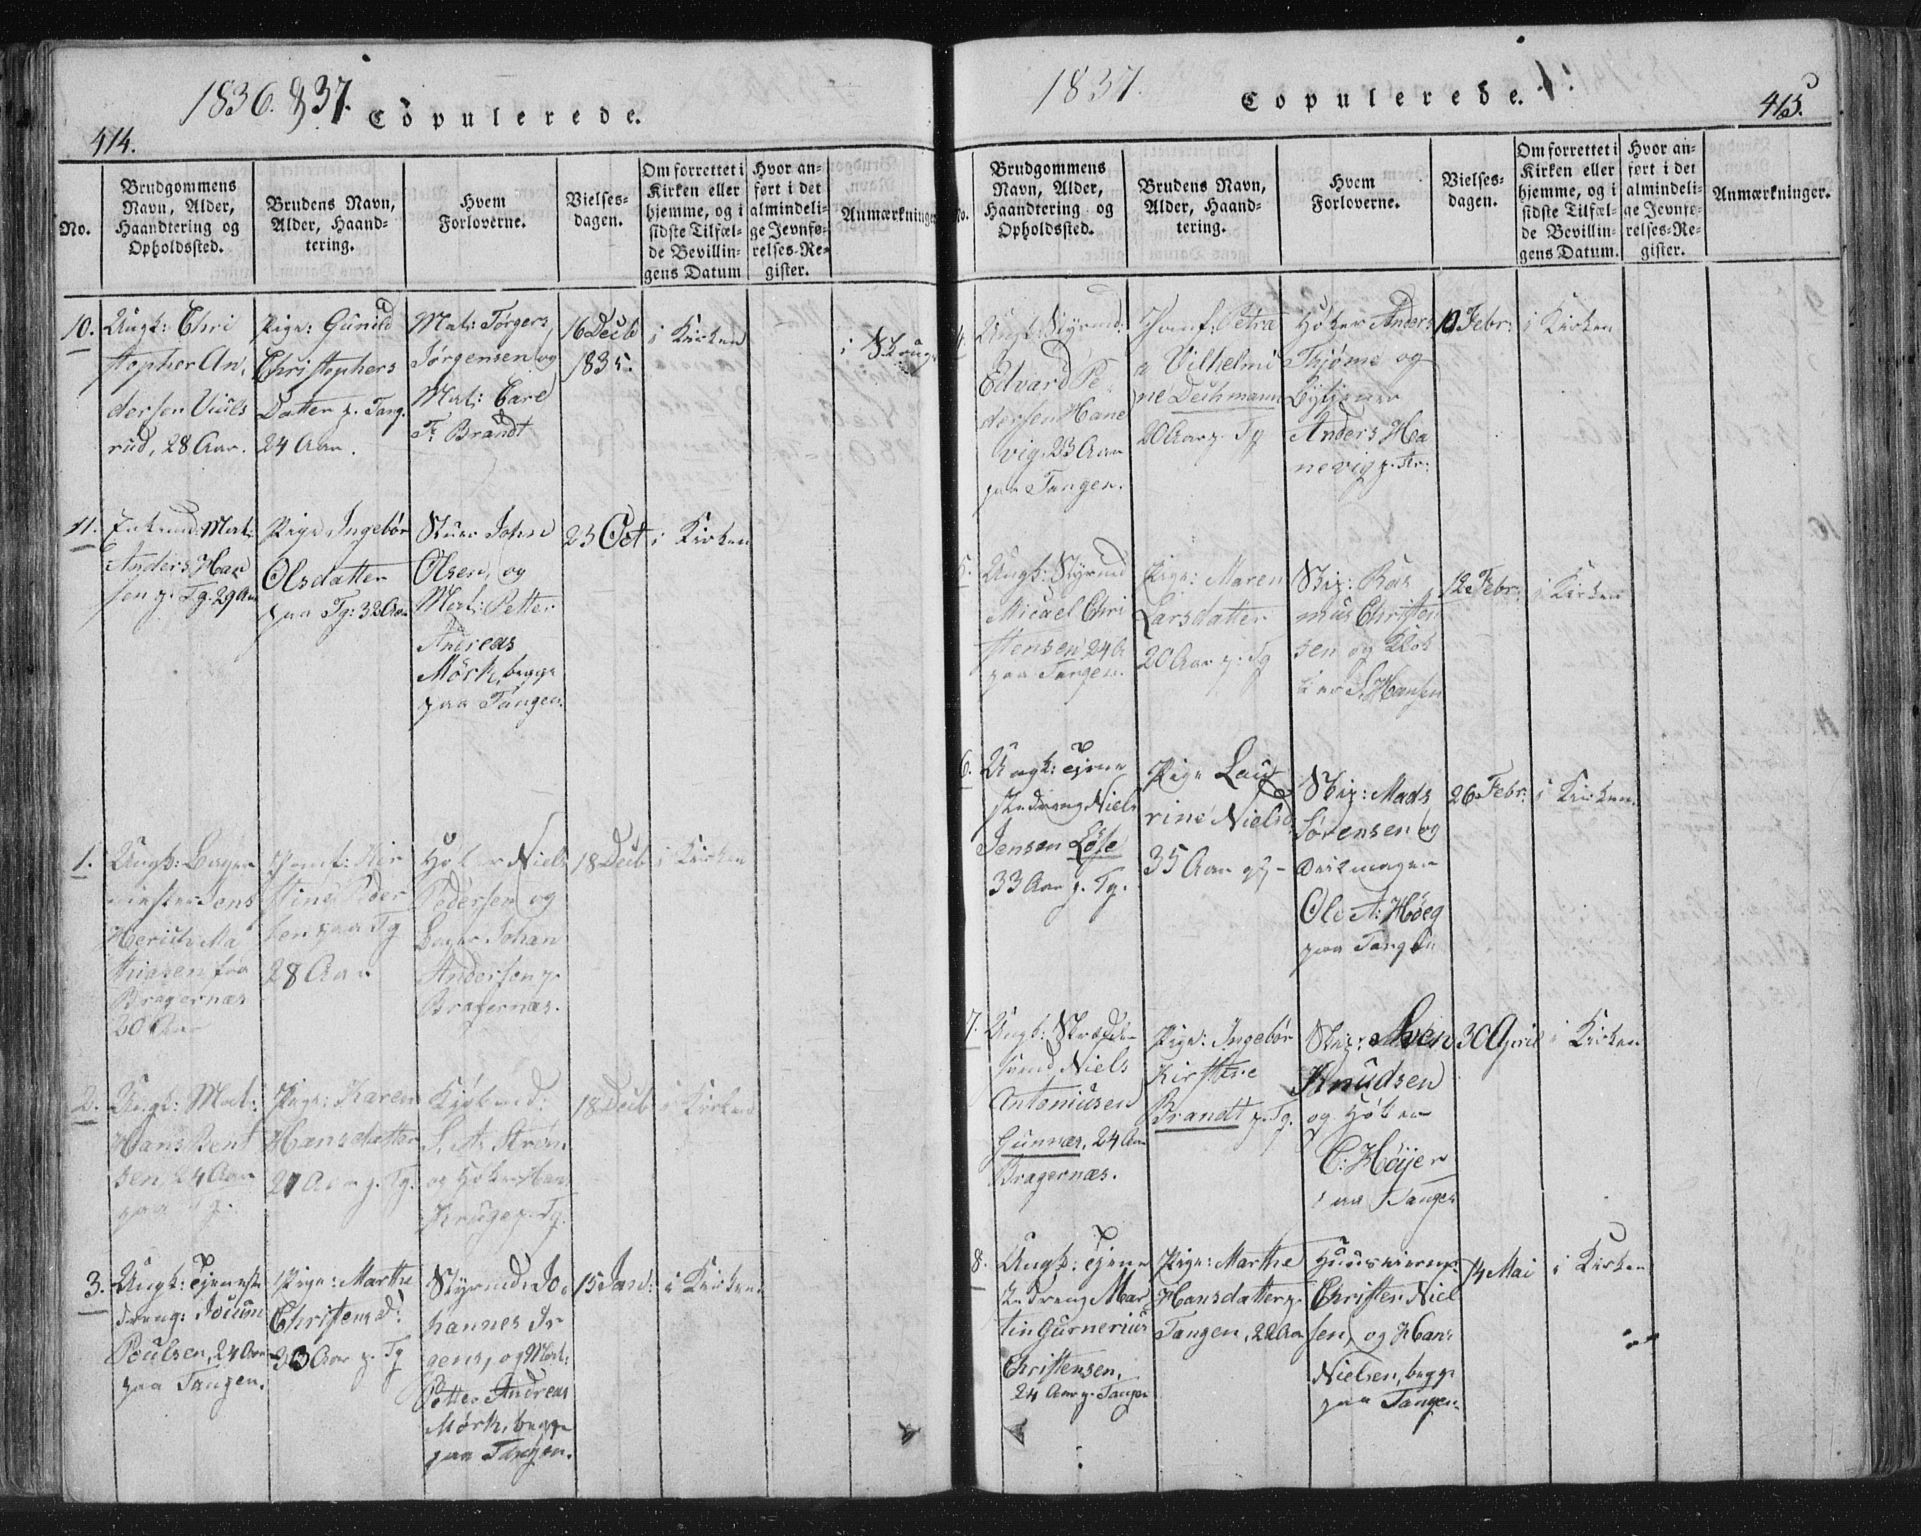 1836. & 37.
Copulerede.
414.
No.
Brudgommens
Navn, Alder,
Haandtering og
Opholdssted.
Brudens Navn,
Alder, Haand-
tering.
Hvem
Forloverne.
Vielses-
dagen.
Om forrettet i
Kirken eller
hjemme, og i
sidste Tilfæl-
de Bevillin-
gens Datum
Hvor an-
ført i det
almindeli-
ge Jevnfø-
relses-Re-
gister.
Anmærkninger
10.
Ungk: Chri
stopher An,
dersen
rud, 28 Aar.
Pige: Gunild
Christophers
Datter p. Tang.
24 Aar.
Mat: Jørgers
Jørgensen og
Mat: Carl
Fr. Brandt
16 Decb
1835.
i Kirken
11.
Enkemd: Mat:
Anders Han
sen p. Tg. 29 Aar
Pige Ingebór
Olsdatter
paa Tg: 32 Aar
Stuer Johan
Olsen, og
Mat: Petter
Andreas
Mörk, begge
paa Tangen.
23 Oct
i Kirken
1.
Ungk: Bager
mester Jens
Henrich Ma
thiasen fra
Bragernæs
30 Aar
Jomf: Kir
stine Peder
sen paa Tg
28 Aar
Höker Niels
Pedersen og
Bager Johan
Andersen p.
Bragernæs.
18 Decb
i Kirken
2.
Ungk: Mat:
Hans Bent
sen, 24 Aar
paa Tg.
Pige: Karen
Hansdatter
21 Aar p. Tg.
Kiöbmd:
S. A. Ström
og Höker Han
Kruge p. Tg.
18 Decb
i Kirken
3.
Ungk: Tjeneste
dreng: Jocum
Poulsen, 24 Aar
paa Tangen.
Pige: Marthe
Christensd:
30 Aar p. Tg
Styrmd: Jo,
hannes Jr
gens, og Mat:
Petter Andreas
Mörk, begge
paa Tangen.
15 Jan:
i Kirken
1837.
Copulerede.
415.
No.
Brudgommens
Navn, Alder,
Haandtering og
Opholdssted.
Brudens Navn,
Alder, Haand-
tering.
Hvem
Forloverne.
Vielses-
dagen.
Om forrettet i
Kirken eller
hjemme, og i
sidste Tilfæl-
de Bevillin-
gens Datum.
Hvor an-
ført i det
almindeli-
ge Jevnfø-
relses-Re-
gister.
Anmærkninger.
4.
Ungk: Styrmd:
Edvard Pe,
dersen Hane
vig, 23 Aar
paa Tangen.
Jomf: Petra
Vilhelmi
ne Deihmann
20 Aar p. Tg
Höker Anders
Thjöme og
Anders Ha
nevig p. Str:
10 Febr:
i Kirken
5.
Ungk: Styrmd
Micael Chri
stensen, 24 A
paa Tangen.
Pige: Maren
Larsdatter
20 Aar p: Tg
Skip: Ras
mus Christen
sen og
S. Hansen
12 Febr:
i Kirken
6.
Ungk: Tjene
stedreng Niels
Jensen Löfe
33 Aar p. Tg.
Pige Lau
rine Nielsd.
35 Aar
Skip: Mads
Sørensen og
Ole A: Höeg
paa Tangen
26 Febr:
i Kirken
7.
Ungk: Skrædder
svend Niels
Antoniusen
Gunnær, 24 Aar
Bragernæs.
Pige: Ingebör
Kirstine
Brandt p. Tg.
Skip: Sven
Knudsen
og Höker
C: Höijer
paa Tangen
30 April
i Kirken
8.
Ungk: Tjene
stedreng Mar
tin Gurnerius
Christensen,
24 Aar p. Tangen
Pige: Marthe
Hansdatter p.
Tangen, 22 Aar
Christen Niel
sen, og Hans
Nielsen, begge
paa Tangen
14 Mai
i Kirken